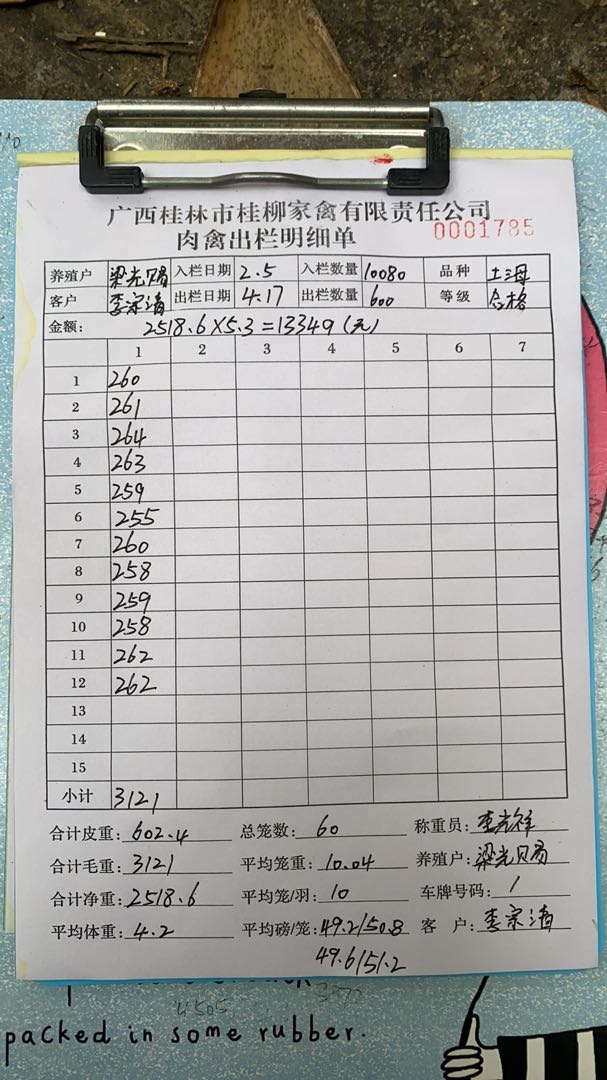 广西桂林市桂柳家禽有限责任公司
肉禽出栏明细单 0001785
养殖户 梁光贝易 入栏日期 2.5 入栏数量 10080 品种 土2母
客户 李宗清 出栏日期 4.17 出栏数量 600 等级 合格
金额: 2518.6×5.3=13349(元)
1 2 3 4 5 6 7
1 260
2 261
3 264
4 263
5 259
6 255
7 260
8 258
9 259
10 258
11 262
12 262
13
14
15
小计 3121
合计皮重: 602.4 总笼数: 60 称重员: 李光祥
合计毛重: 3121 平均笼重: 10.04 养殖户: 梁光贝易
合计净重: 2518.6 平均笼/羽: 10 车牌号码: 1
平均体重: 4.2 平均磅/笼: 49.2/50.8 客 户: 李宗清
49.6/51.2
packed in some rubber.